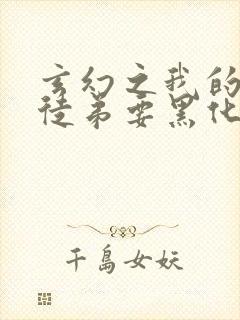 玄幻之我的
徒弟要黑化
千岛女妖